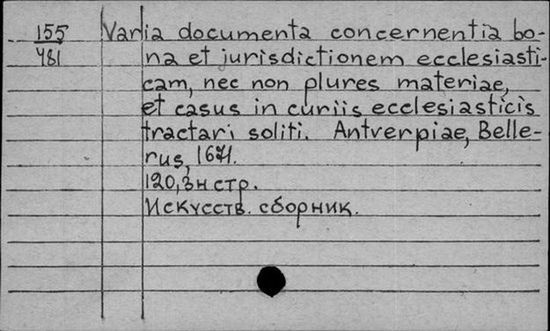 155 Varia documenta concernentia bo-
481 na et jurisdictionem ecclesiasti-
cam, nec non plures materiae,
et casus in curiis ecclesiasticis
tractari soliti. Antverpiae, Belle-
rus, 1671.
120, 3н стр.
Искусств. сборник.